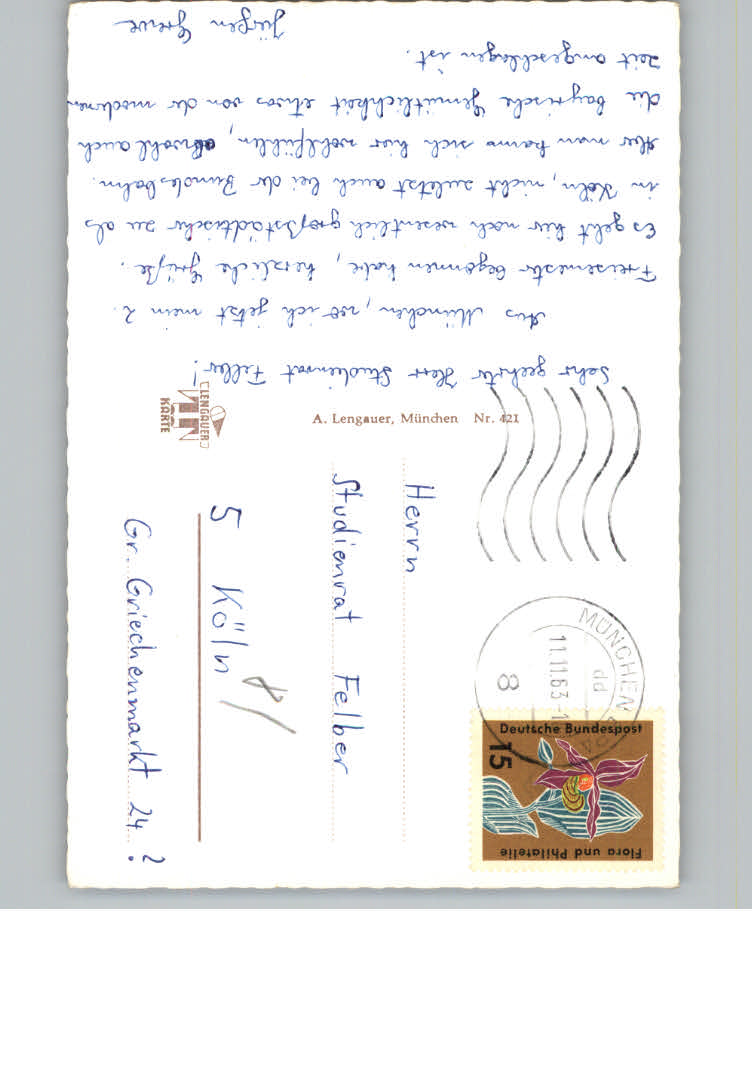 Sehr geehrter Herr Studienrat Felber!
Aus München, wo ich jetzt mein 2.
Freisemester begonnen habe, herzliche Grüße.
Es geht hier noch wesentlich großstädtischer zu als
in Köln, nicht zuletzt auch bei der Bundesbahn.
Aber man kann sich hier wohlfühlen, obwohl auch
die bayrische Gemütlichkeit etwas von der modernen
Zeit angeschlagen ist.
Jürgen Greve
A. Lengauer, München Nr. 421
LENGAUER
KARTE
Herrn
Studienrat Felber
5 Köln
Gr. Griechenmarkt 24 ?
MÜNCHEN
dd
11.11.63-1
8
Deutsche Bundespost
15
Flora und Philatelie